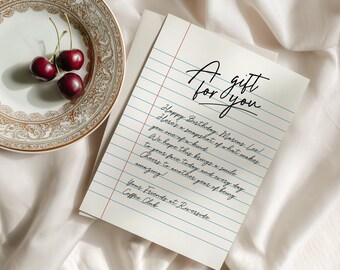 A gift
for you
Happy Birthday Marcus Lee!
Here's a snapshot of what makes
you one of a kind.
We hope this brings a smile
to your face today and every day.
Cheers to another year of being
amazing!
Your Friends at Riverside
Coffee Club